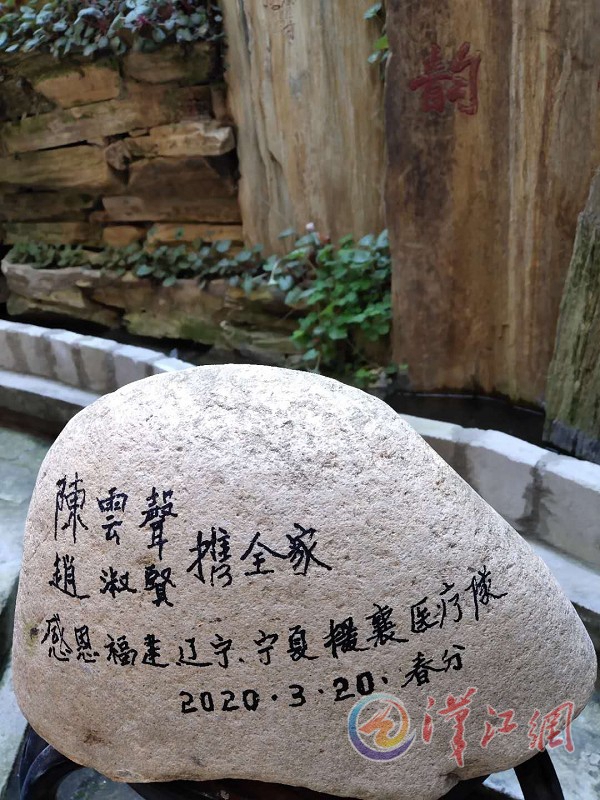 韵
陳雲聲
趙淑賢 携全家
感恩福建辽宁、宁夏援襄医疗隊
2020·3·20·春分
漢江網